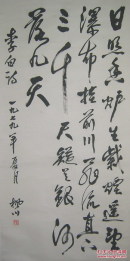 日照香爐生紫煙遥看
瀑布挂前川飛流直下
三千尺疑是銀河
落九天
李白詩 一九七九年夏月